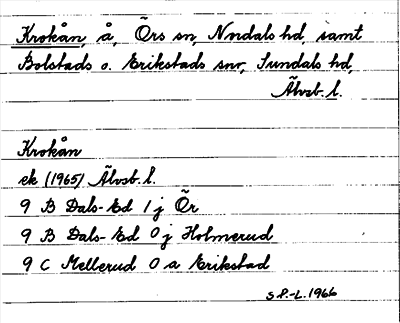 Krokån, å, Örs sn, Nordals hd, samt
Bolstads o. Erikstads snr, Sundals hd,
Älvsb. l.
Krokån
ek (1965) Älvsb. l.
9 B Dals-Ed 1 j Ör
9 B Dals-Ed 0 j Holmerud
9 C Mellerud 0 a Erikstad
S P.-L. 1966